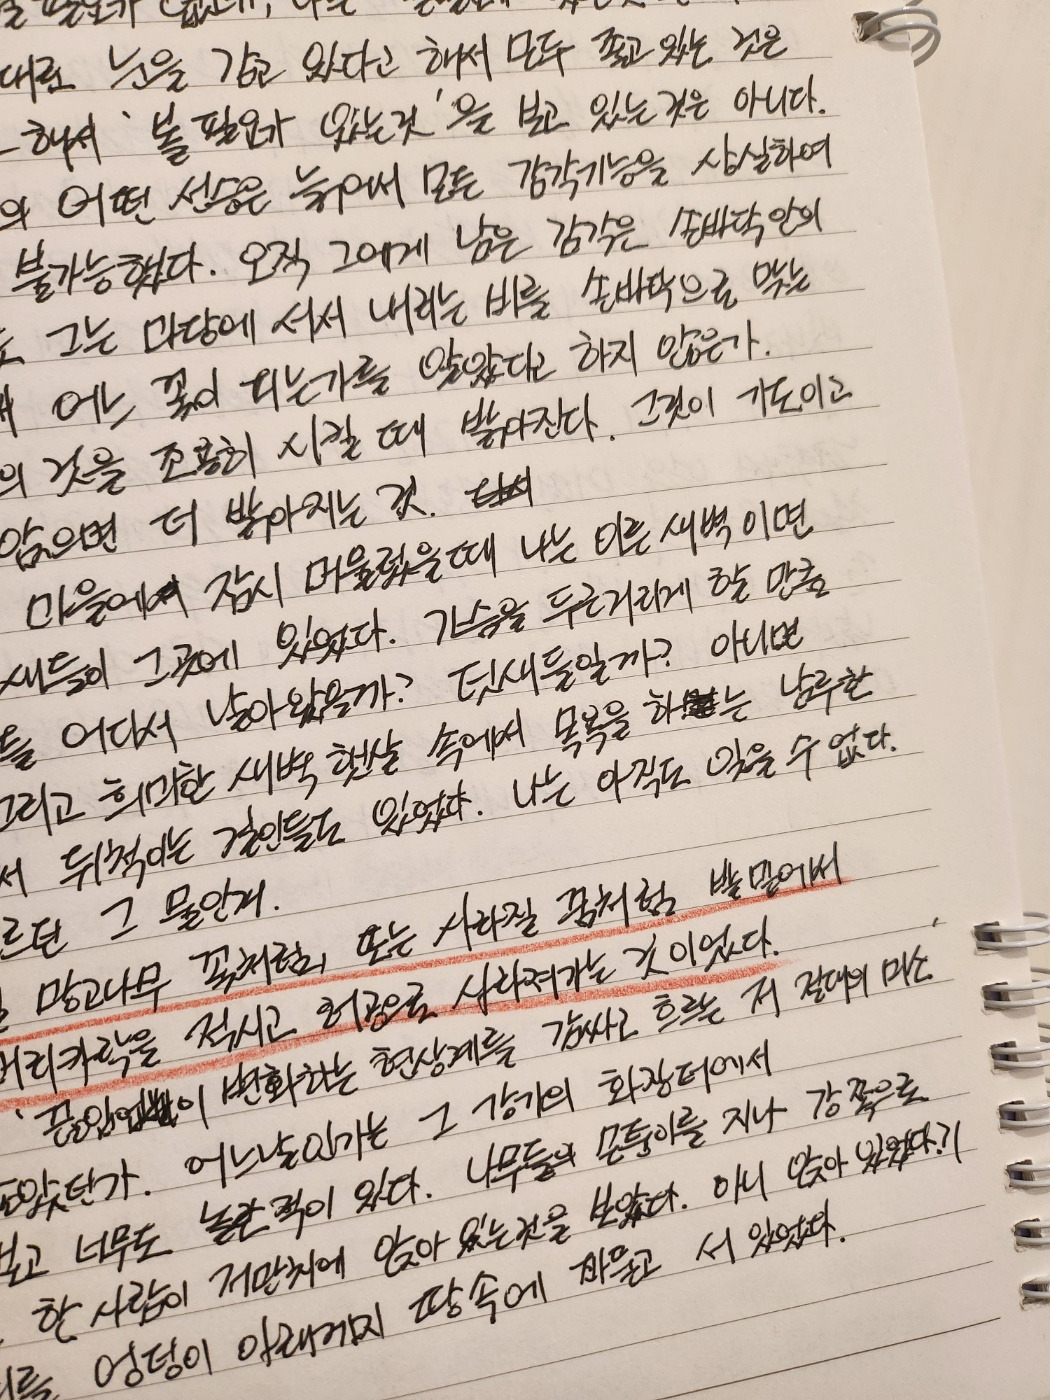 대로 눈을 감고 있다고 해서 모두 졸고 있는 것은
해서 '볼 필요가 있는것'을 보고 있는것은 아니다.
의 어떤 선승은 늙어서 모든 감각기능을 상실하여
불가능했다. 오직 그에게 남은 감각은 손바닥안의
그는 마당에 서서 내리는 비를 손바닥으로 맞는
어느 꽃이 피는가를 알았다고 하지 않은가.
의 것을 조용히 시킬 때 밝아진다. 그것이 기도이고
않으면 더 밝아지는 것.
마을에서 잠시 머물렀을때 나는 이른 새벽이면
새들이 그곳에 있었다. 가슴을 두근거리게 할 만큼
들 어디서 날아왔을까? 텃새들일까? 아니면
그리고 희미한 새벽 햇살 속에서 목욕을 하는 남루한
서 뒤척이는 걸인들도 있었다. 나는 아직도 잊을 수 없다.
르던 그 물안개.
망고나무 꽃처럼, 또는 사라질 꿈처럼 발밑에서
머리카락을 적시고 허공으로 사라져가는 것이었다.
'끊임없이 변화하는 현상계를 감싸고 흐르는 저 절대의 미소'
어느날인가는 그 강가의 화장터에서
보고 너무도 놀란적이 있다. 나무들의 몸뚱이를 지나 강쪽으로
한 사람이 저만치에 앉아 있는것을 보았다. 아니 앉아 있었다기
엉덩이 아래까지 땅속에 파묻고 서 있었다.